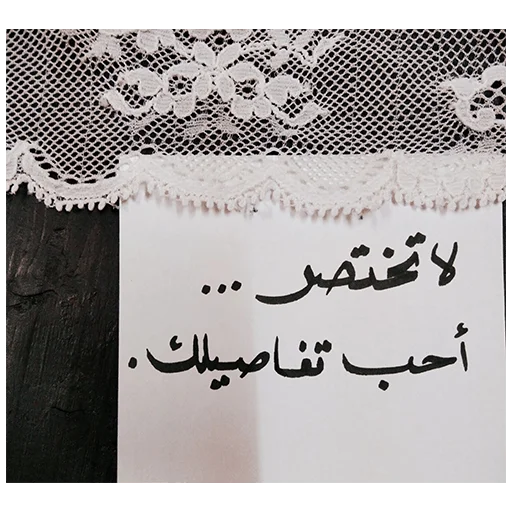 لا تختصر ...
أحب تفاصيلك.